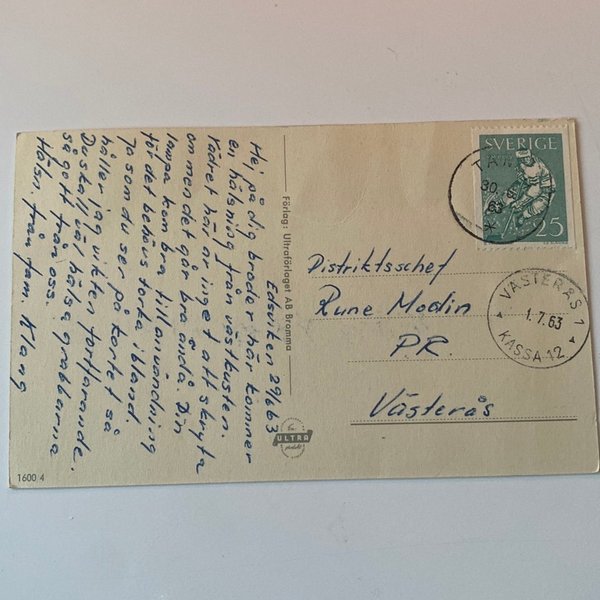 Edsviken 29/6 63
Hej på dig broder här kommer
en hälsning från västkusten.
Vädret här är inget att skryta
om men det går bra ändå. Din
lampa kom bra till användning
för det behövs torka ibland
Ja som du ser på kortet så
håller jag vikten fortfarande.
Du skall väl hälsa grabbarna
så gott från oss.
Hälsn från fam. Klang
Förlag: Ultraförlaget AB Bromma
ULTRA
1600/4
SVERIGE
25
TAN
30.
63
VÄSTERÅS 1
1.7.63
KASSA 12
Distriktsschef
Rune Modin
P.R.
Västerås